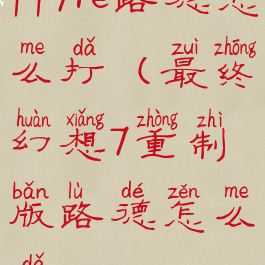 me dǎ zuì zhōng
么打(最终
huàn xiǎng zhòng zhì
幻想7重制
bǎn lù dé zěn me
版路德怎么
dǎ